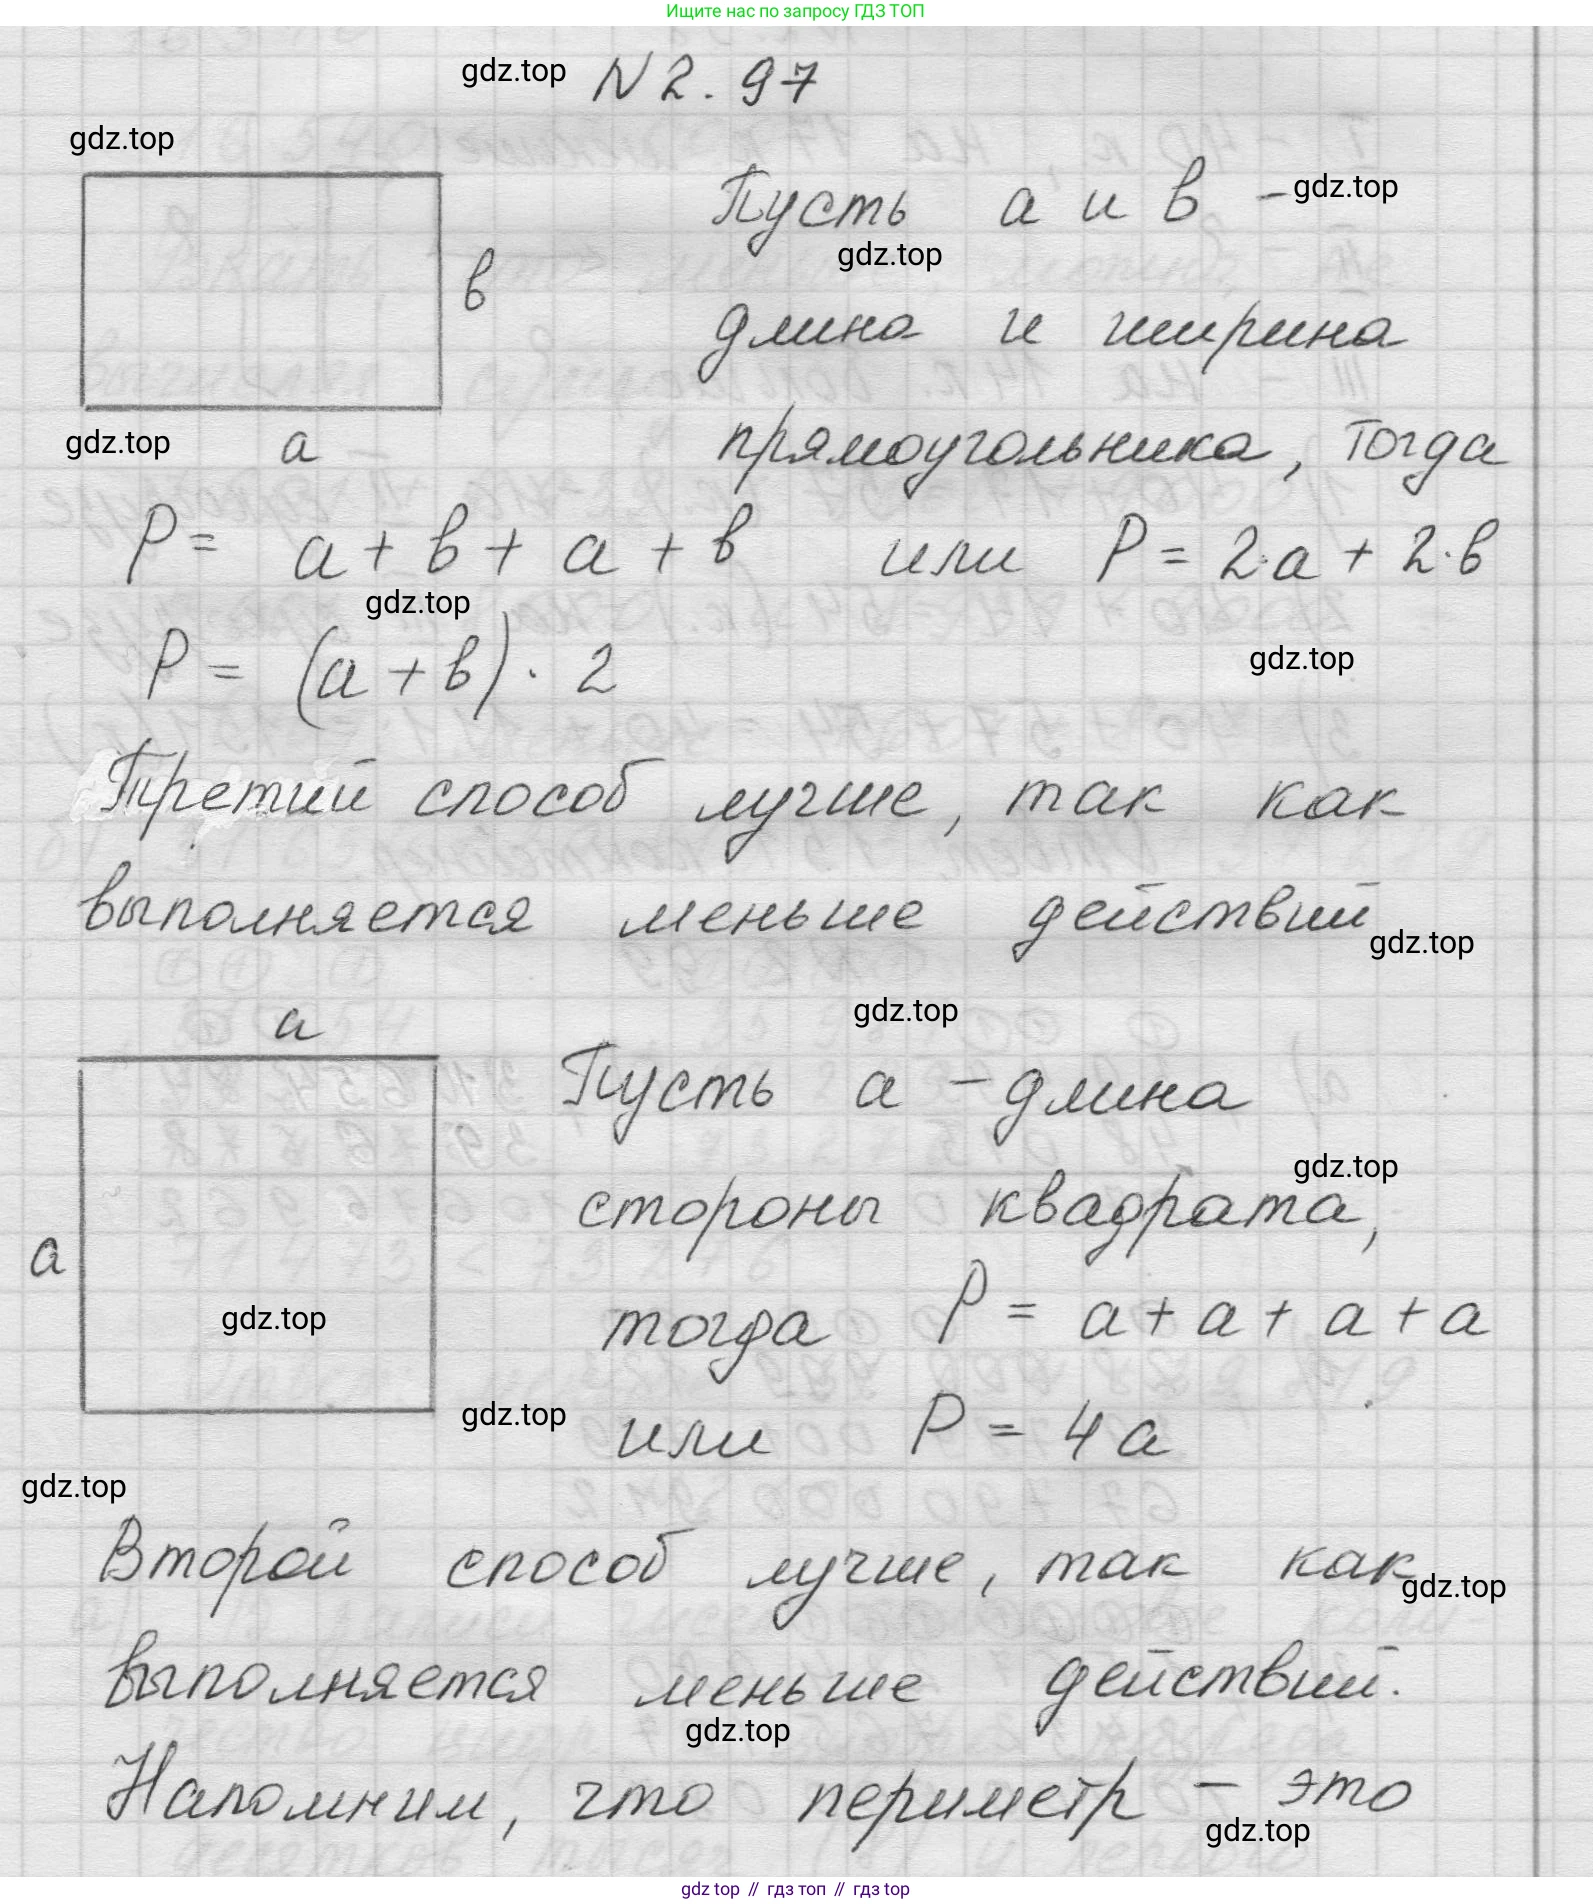 Ищите нас по запросу ГДЗ ТОП
gdz.top N 2. 97
gdz.top
Пусть а и в - gdz.top
gdz.top
в
длина и ширина
gdz.top а прямоугольника, тогда
P = а + в + а + в или P = 2·а + 2·в
gdz.top
P = (а + в) · 2 gdz.top
Третий способ лучше, так как
выполняется меньше действий
gdz.top
а gdz.top
Пусть а - длина
gdz.top
стороны квадрата,
а
gdz.top тогда P = а + а + а + а
gdz.top или P = 4а
gdz.top
Второй способ лучше, так как
gdz.top
выполняется меньше действий.
gdz.top
Напомним, что периметр - это
gdz.top
gdz top // гдз топ // gdz top